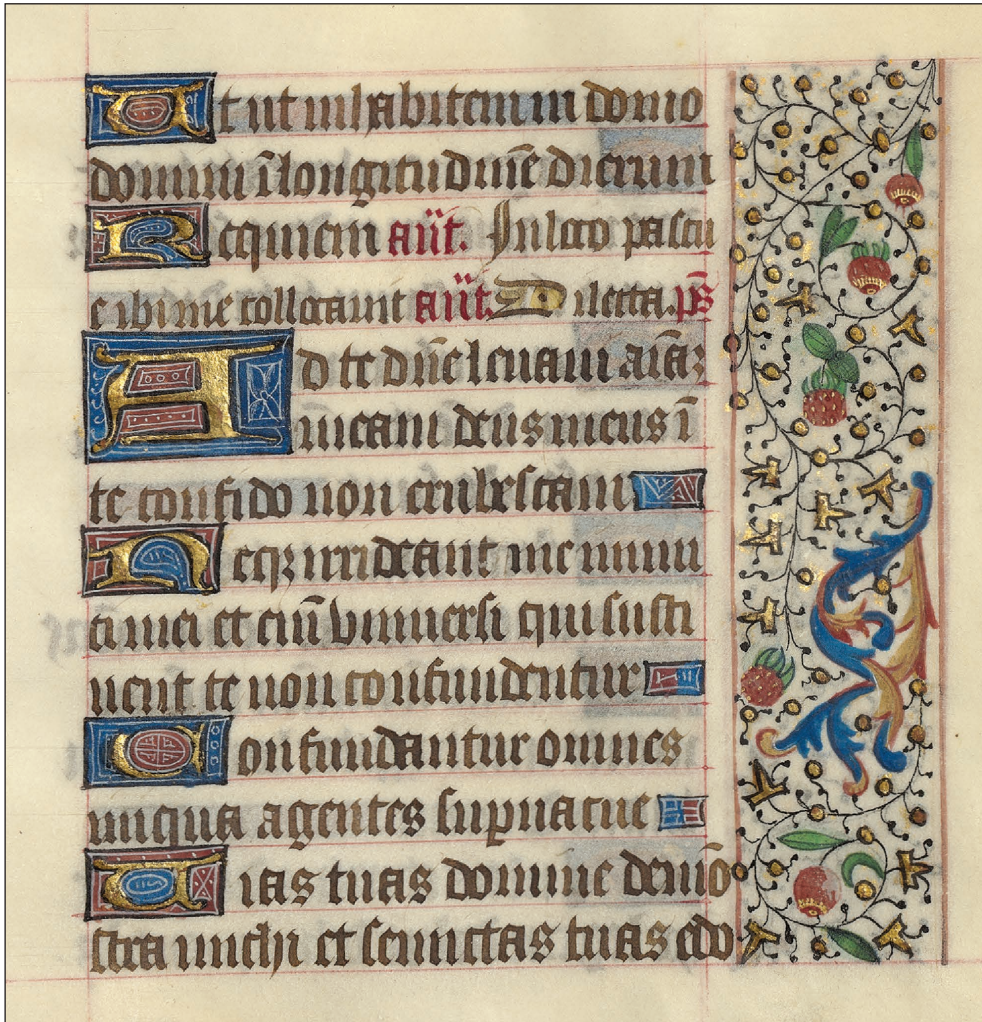 Et ut inhabitem in domo
domini ī longitudinē dierum
Requiem añt. In loco pascu
e ibi me collocavit añt. Dilecta. ps̄
Ad te dñe levavi aīaꝫ
meam deus meus ī
te confido non erubescam
Neqꝫ irrideant me inimi
ci mei et eñi universi qui susti
nent te non confundentur
Confundantur omnes
iniqua agentes supvacue
Vias tuas domine demō
stra michi et semictas tuas edo